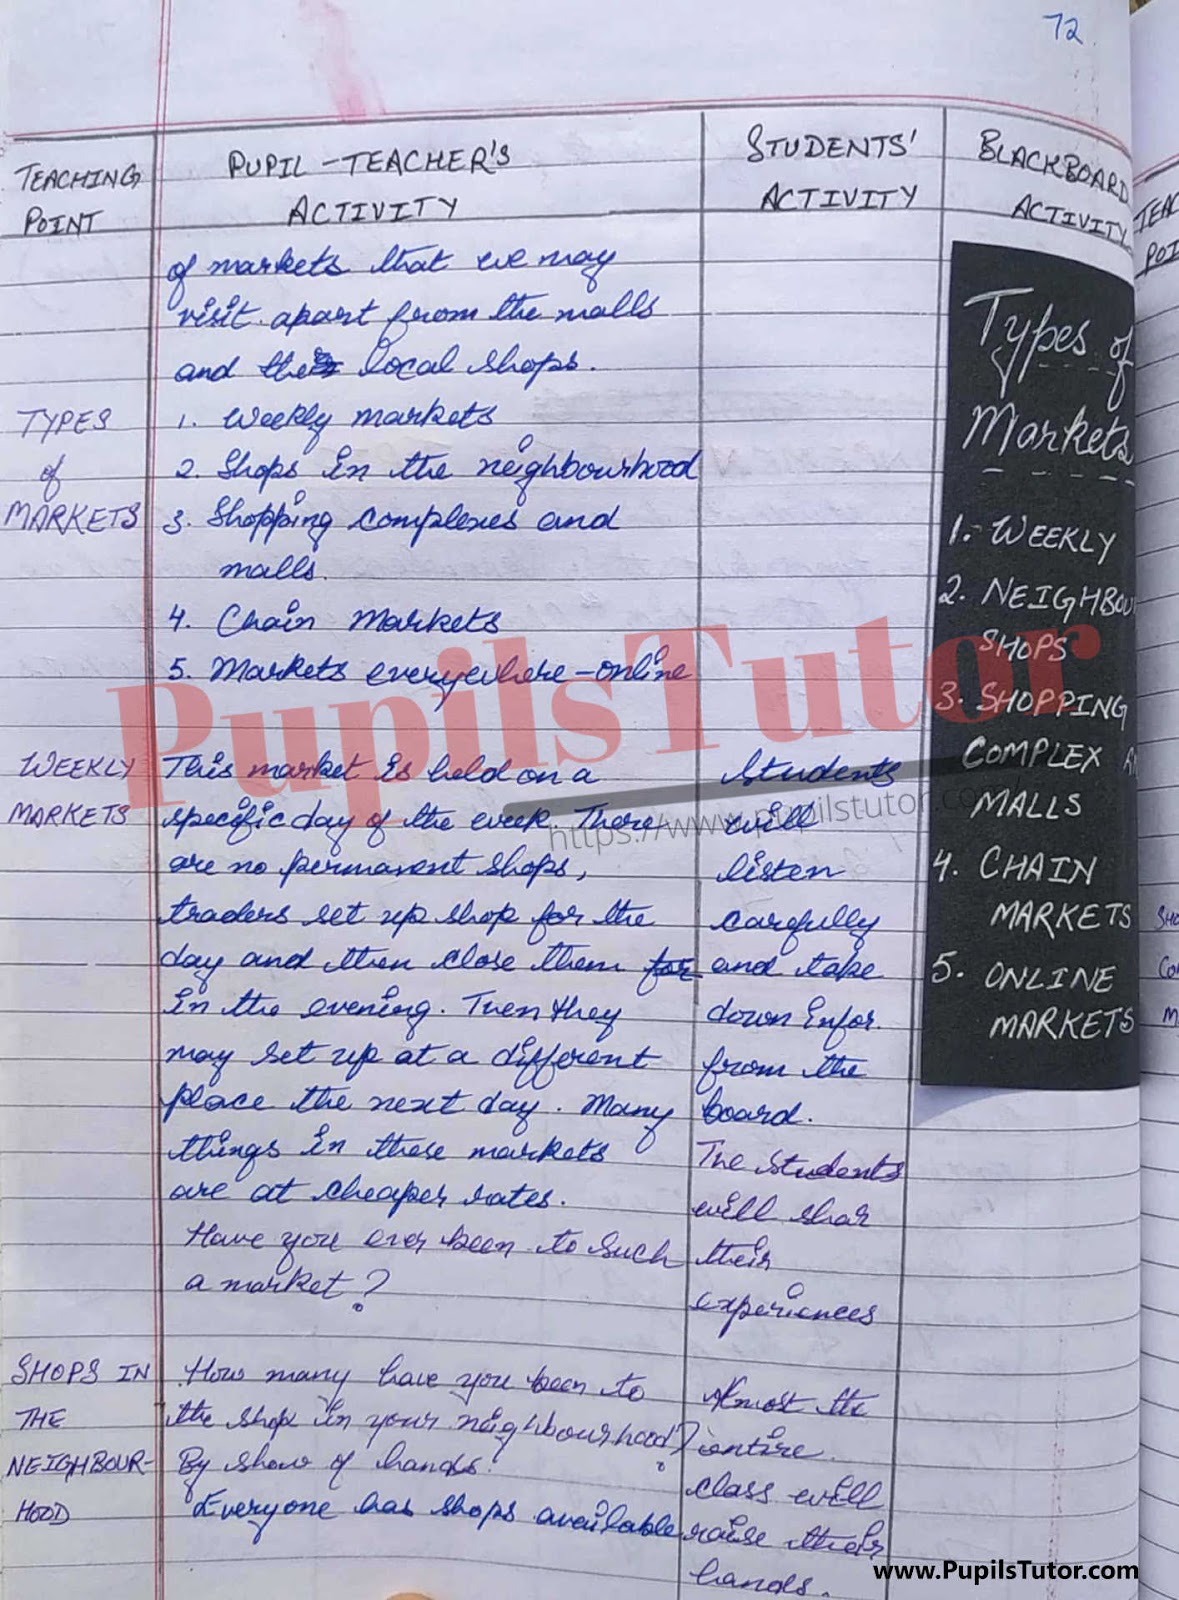 72
TEACHING
POINT
PUPIL-TEACHER'S
ACTIVITY
STUDENTS'
ACTIVITY
BLACKBOARD
ACTIVITY
of markets that we may
visit apart from the malls
and the local shops.
TYPES
of
MARKETS
1. Weekly markets
2. Shops in the neighbourhood
3. Shopping complexes and
malls.
4. Chain Markets
5. Markets everywhere-online
WEEKLY
MARKETS
This market is held on a
specific day of the week. There
are no permanent shops,
traders set up shop for the
day and then close them for
in the evening. Then they
may set up at a different
place the next day. Many
things in these markets
are at cheaper rates.
Have you ever been to such
a market?
Students
will
listen
carefully
and take
down infor.
from the
board.
The students
will shar
their
experiences
SHOPS IN
THE
NEIGHBOUR-
HOOD
How many have you been to
the shop in your neighbourhood?
By show of hands.
Everyone has shops available
Almost the
entire
class will
raise their
hands.
Types of
Markets
1. WEEKLY
2. NEIGHBOU
SHOPS
3. SHOPPING
COMPLEX
MALLS
4. CHAIN
MARKETS
5. ONLINE
MARKETS
TEAC
POI
SHO
Co
M
PupilsTutor
https://www.pupilstutor.co
www.PupilsTutor.com